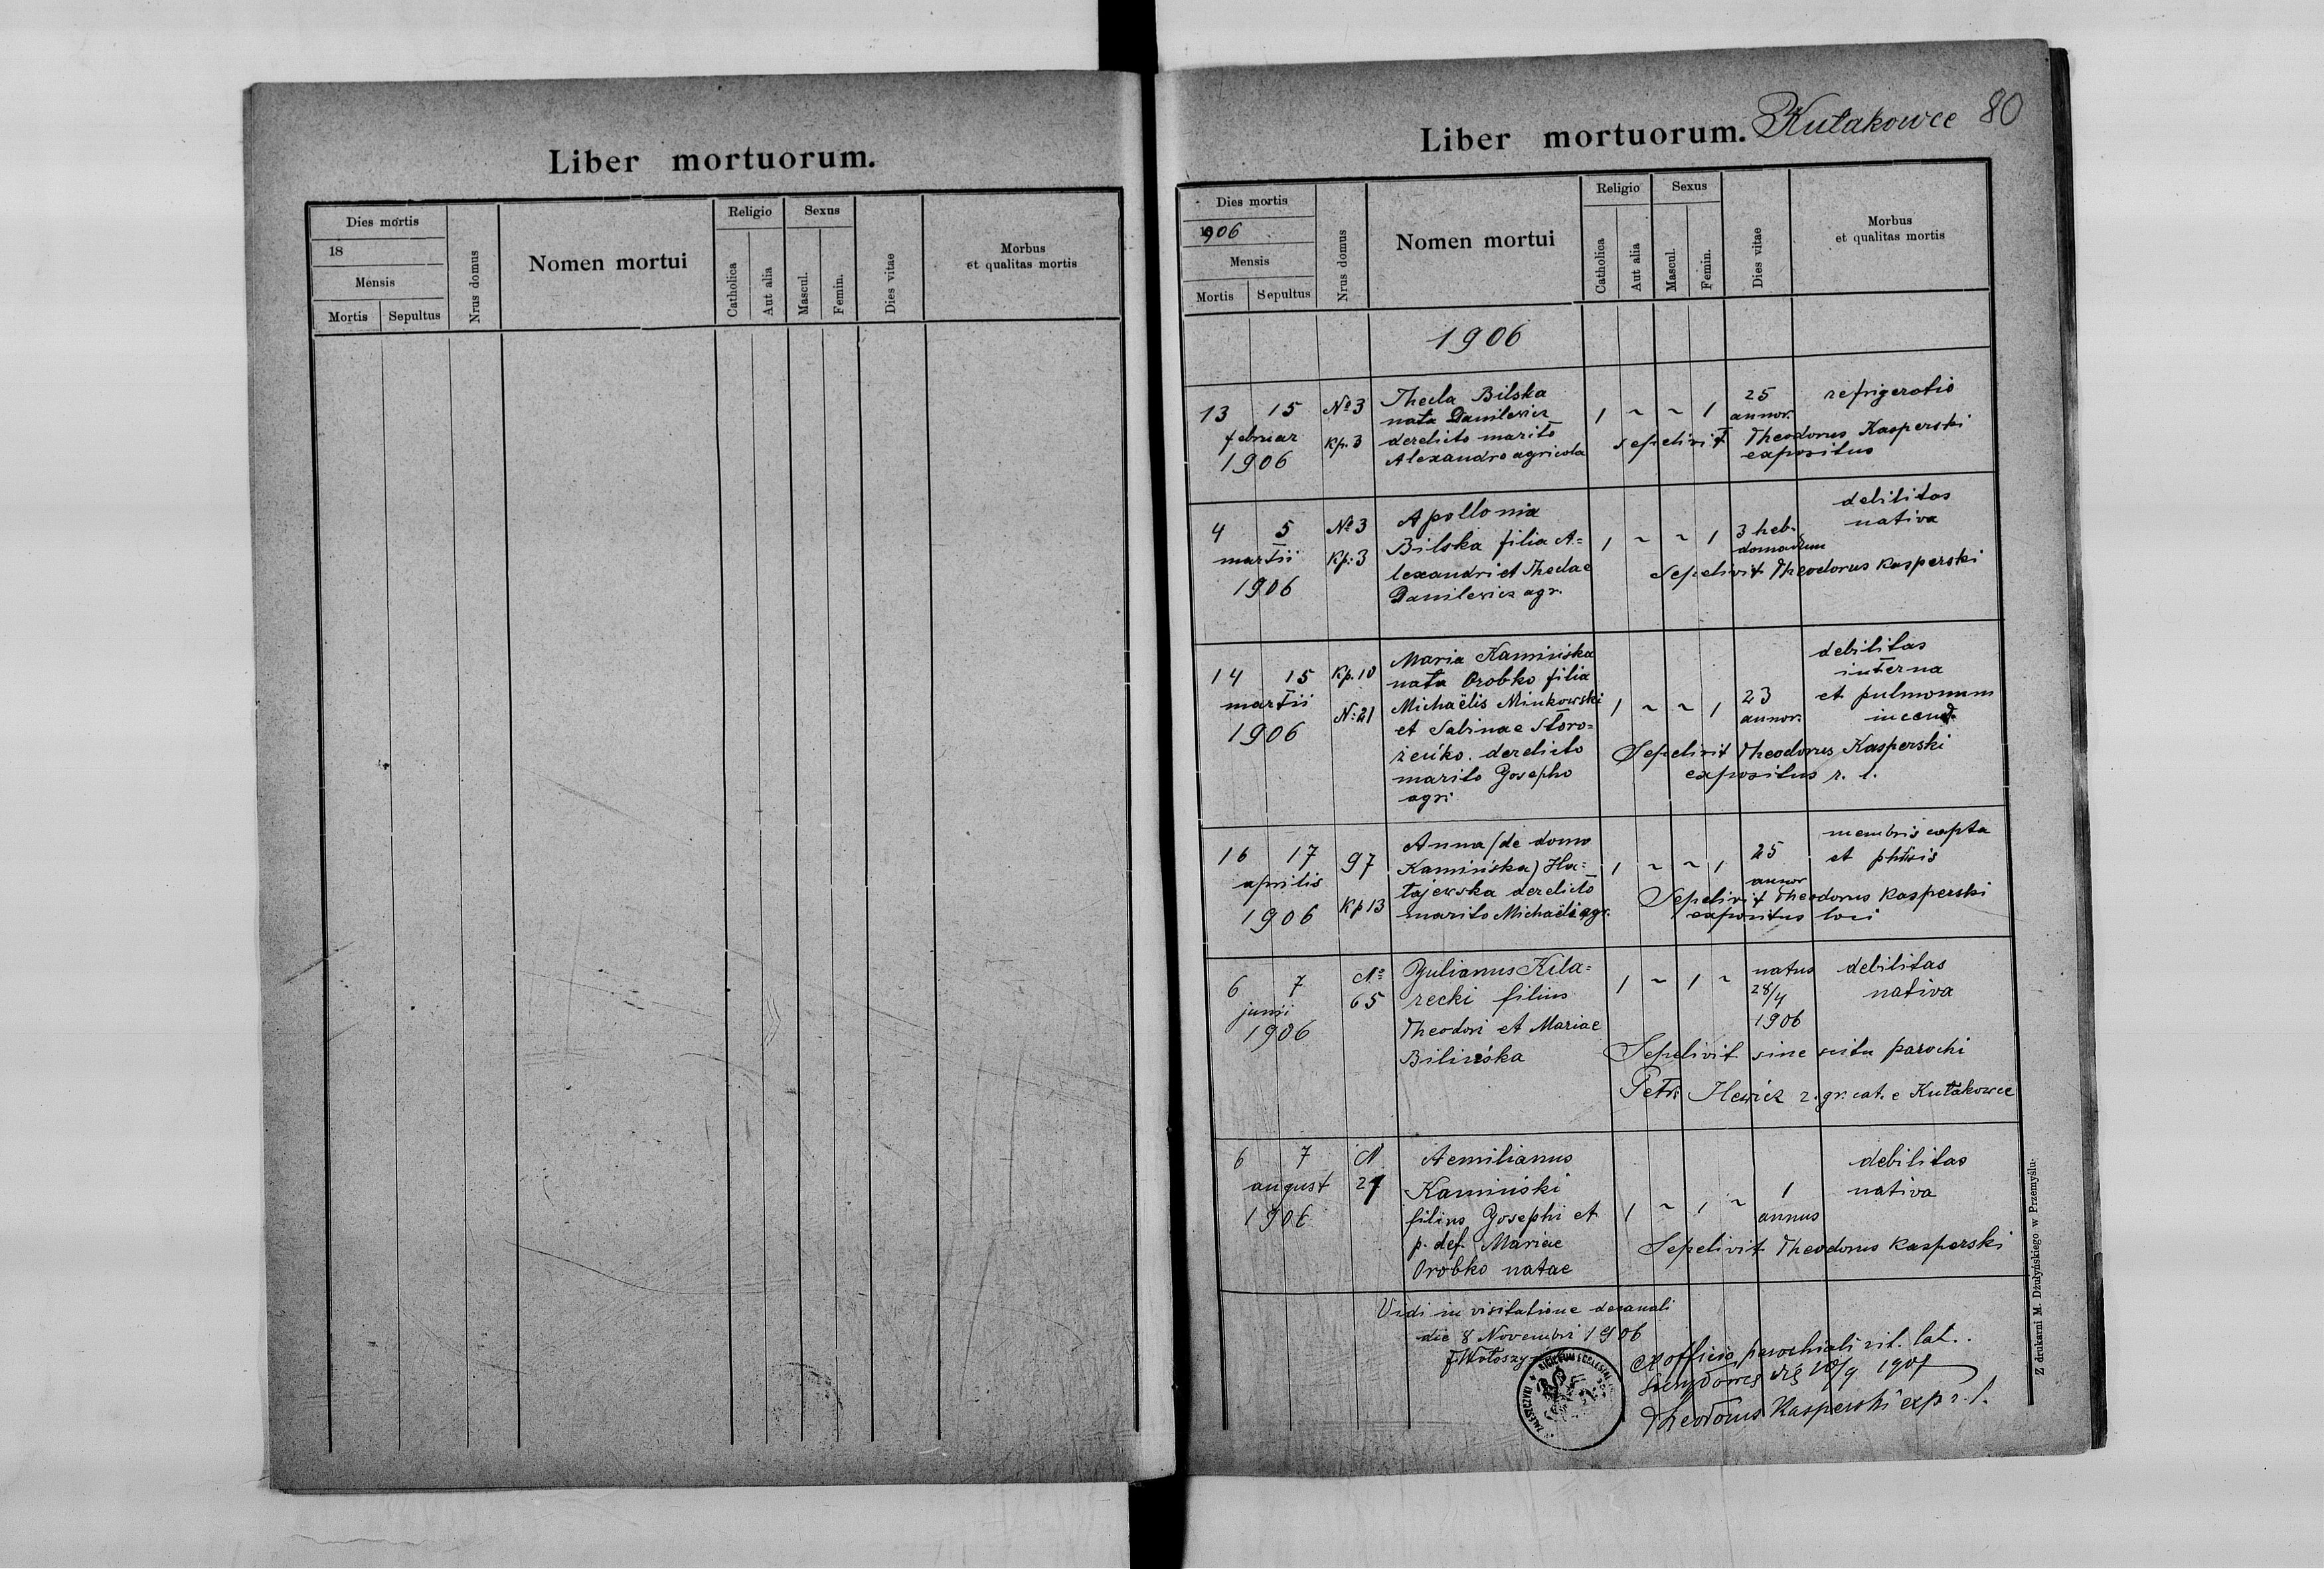 Liber mortuorum.
Dies mortis
18
Mensis
Mortis
Sepultus
Nrus domus
Nomen mortui
Religio
Catholica
Aut alia
Sexus
Mascul.
Femin.
Dies vitae
Morbus
et qualitas mortis
Liber mortuorum. Kułakowce 80
Dies mortis
1906
Mensis
Mortis
Sepultus
Nrus domus
Nomen mortui
Religio
Catholica
Aut alia
Sexus
Mascul.
Femin.
Dies vitae
Morbus
et qualitas mortis
1906
13 15
februar
1906
No 3
Kp. 3
Thecla Bilska
nata Danilewicz
derelicto marito
Alexandro agricola
1 ~ ~ 1
25
annor.
refrigeratio
sepelivit Theodorus Kasperski
expositus
4 5
martii
1906
No 3
Kp. 3
Apollonia
Bilska filia A=
lexandri et Theclae
Danilewicz agr.
1 ~ ~ 1
3 heb-
domadum
debilitas
nativa
Sepelivit Theodorus Kasperski
14 15
martii
1906
Kp. 10
N: 21
Maria Kamińska
nata Orobko filia
Michaëlis Minkowski
et Sabinae Storo=
żeńko. derelicto
marito Josepho
agri.
1 ~ ~ 1
23
annor.
debilitas
interna
et pulmonum
incend.
Sepelivit Theodorus Kasperski
expositus r. l.
16 17
aprilis
1906
97
Kp 13
Anna (de domo
Kamińska) Ha=
tajewska derelicto
marito Michaële agr.
1 ~ ~ 1
25
annor
membris capta
et phtisis
Sepelivit Theodorus Kasperski
expositus loci
6 7
junii
1906
No
65
Julianus Kila=
recki filius
Theodori et Mariae
Bilińska
1 ~ 1 ~
natus
28/4
1906
debilitas
nativa
Sepelivit sine scitu parochi
Petr. Hewicz r. gr. cat. e Kułakowce
6 7
august
1906
N
27
Aemilianus
Kamiński
filius Josephi et
p. def. Mariae
Orobko natae
1 ~ 1 ~
1
annus
debilitas
nativa
Sepelivit Theodorus Kasperski
Vidi in visitatione decanali
die 8 Novembri 1906
ex officio parochiali rit. lat.
1907
Theodorus Kasperski exp r. l.
Z drukarni M. Dżułyńskiego w Przemyślu.